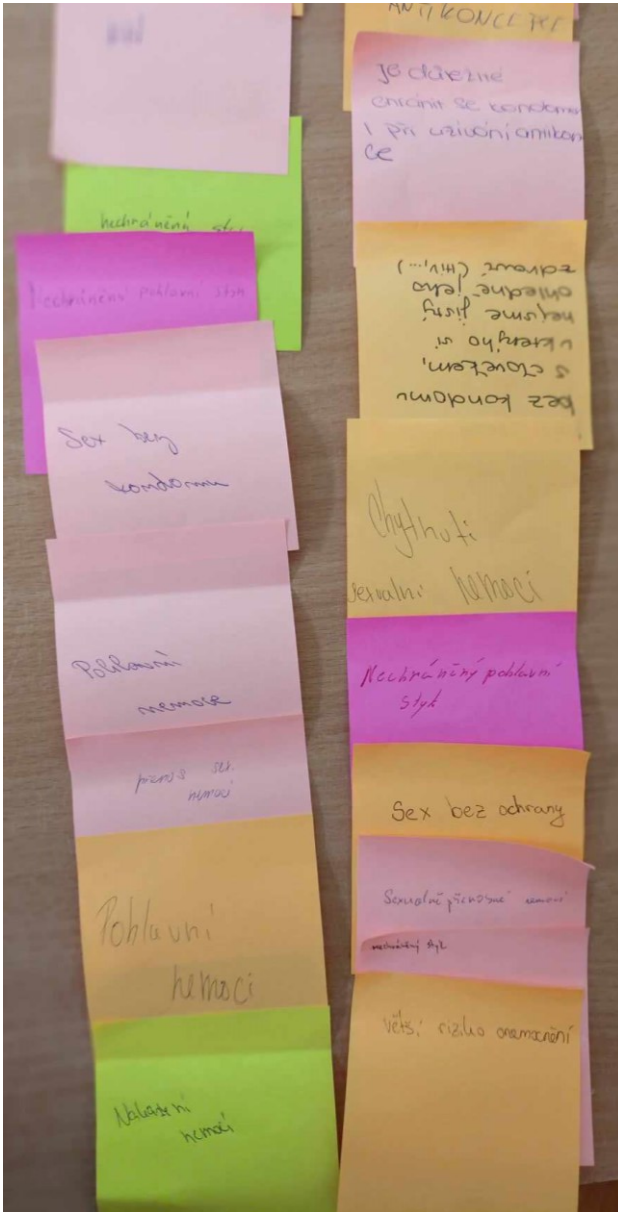 nechráněný
Nechráněný pohlavní styk
Sex bez
kondomu
Pohlavní
nemoce
přenos sex.
nemocí
Pohlavní
nemoci
Nakažení
nemocí
ANTIKONCEPCE
je důležité
chránit se kondomem
i při užívání antikon
ce
bez kondomu
s človekem,
u kterýho si
nejsme jistý
ohledně jeho
zdraví (HIV,...)
Chytnutí
sexualní nemoci
Nechráněný pohlavní
styk
Sex bez ochrany
Sexualně přenosné nemoci
nechráněný styk
větší riziko onemocnění